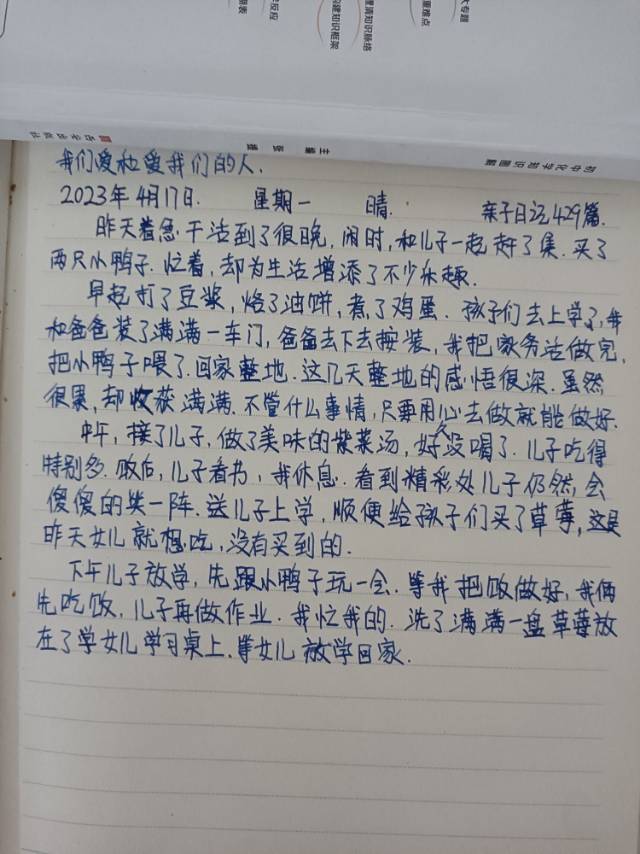 大专题
重难点
理清知识脉络
构建知识框架
学反应
主编 张
初中化学知识图解
我们爱和爱我们的人.
2023年4月17日. 星期一 晴. 亲子日记429篇.
昨天着急干活到了很晚, 闲时, 和儿子一起赶了集. 买了
两只小鸭子. 忙着, 却为生活增添了不少乐趣.
早起打了豆浆, 烙了油饼, 煮了鸡蛋. 孩子们去上学了, 我
和爸爸装了满满一车门, 爸爸去下去按装, 我把家务活做完,
把小鸭子喂了. 回家整地. 这几天整地的感悟很深. 虽然
很累, 却收获满满. 不管什么事情, 只要用心去做就能做好.
中午, 接了儿子, 做了美味的紫菜汤, 好久没喝了. 儿子吃得
特别多. 饭后, 儿子看书, 我休息. 看到精彩处儿子仍然会
傻傻的笑一阵. 送儿子上学, 顺便给孩子们买了草莓, 这是
昨天女儿就想吃, 没有买到的.
下午儿子放学, 先跟小鸭子玩一会. 等我把饭做好, 我俩
先吃饭, 儿子再做作业. 我忙我的. 洗了满满一盘草莓放
在了学女儿学习桌上. 等女儿放学回家.